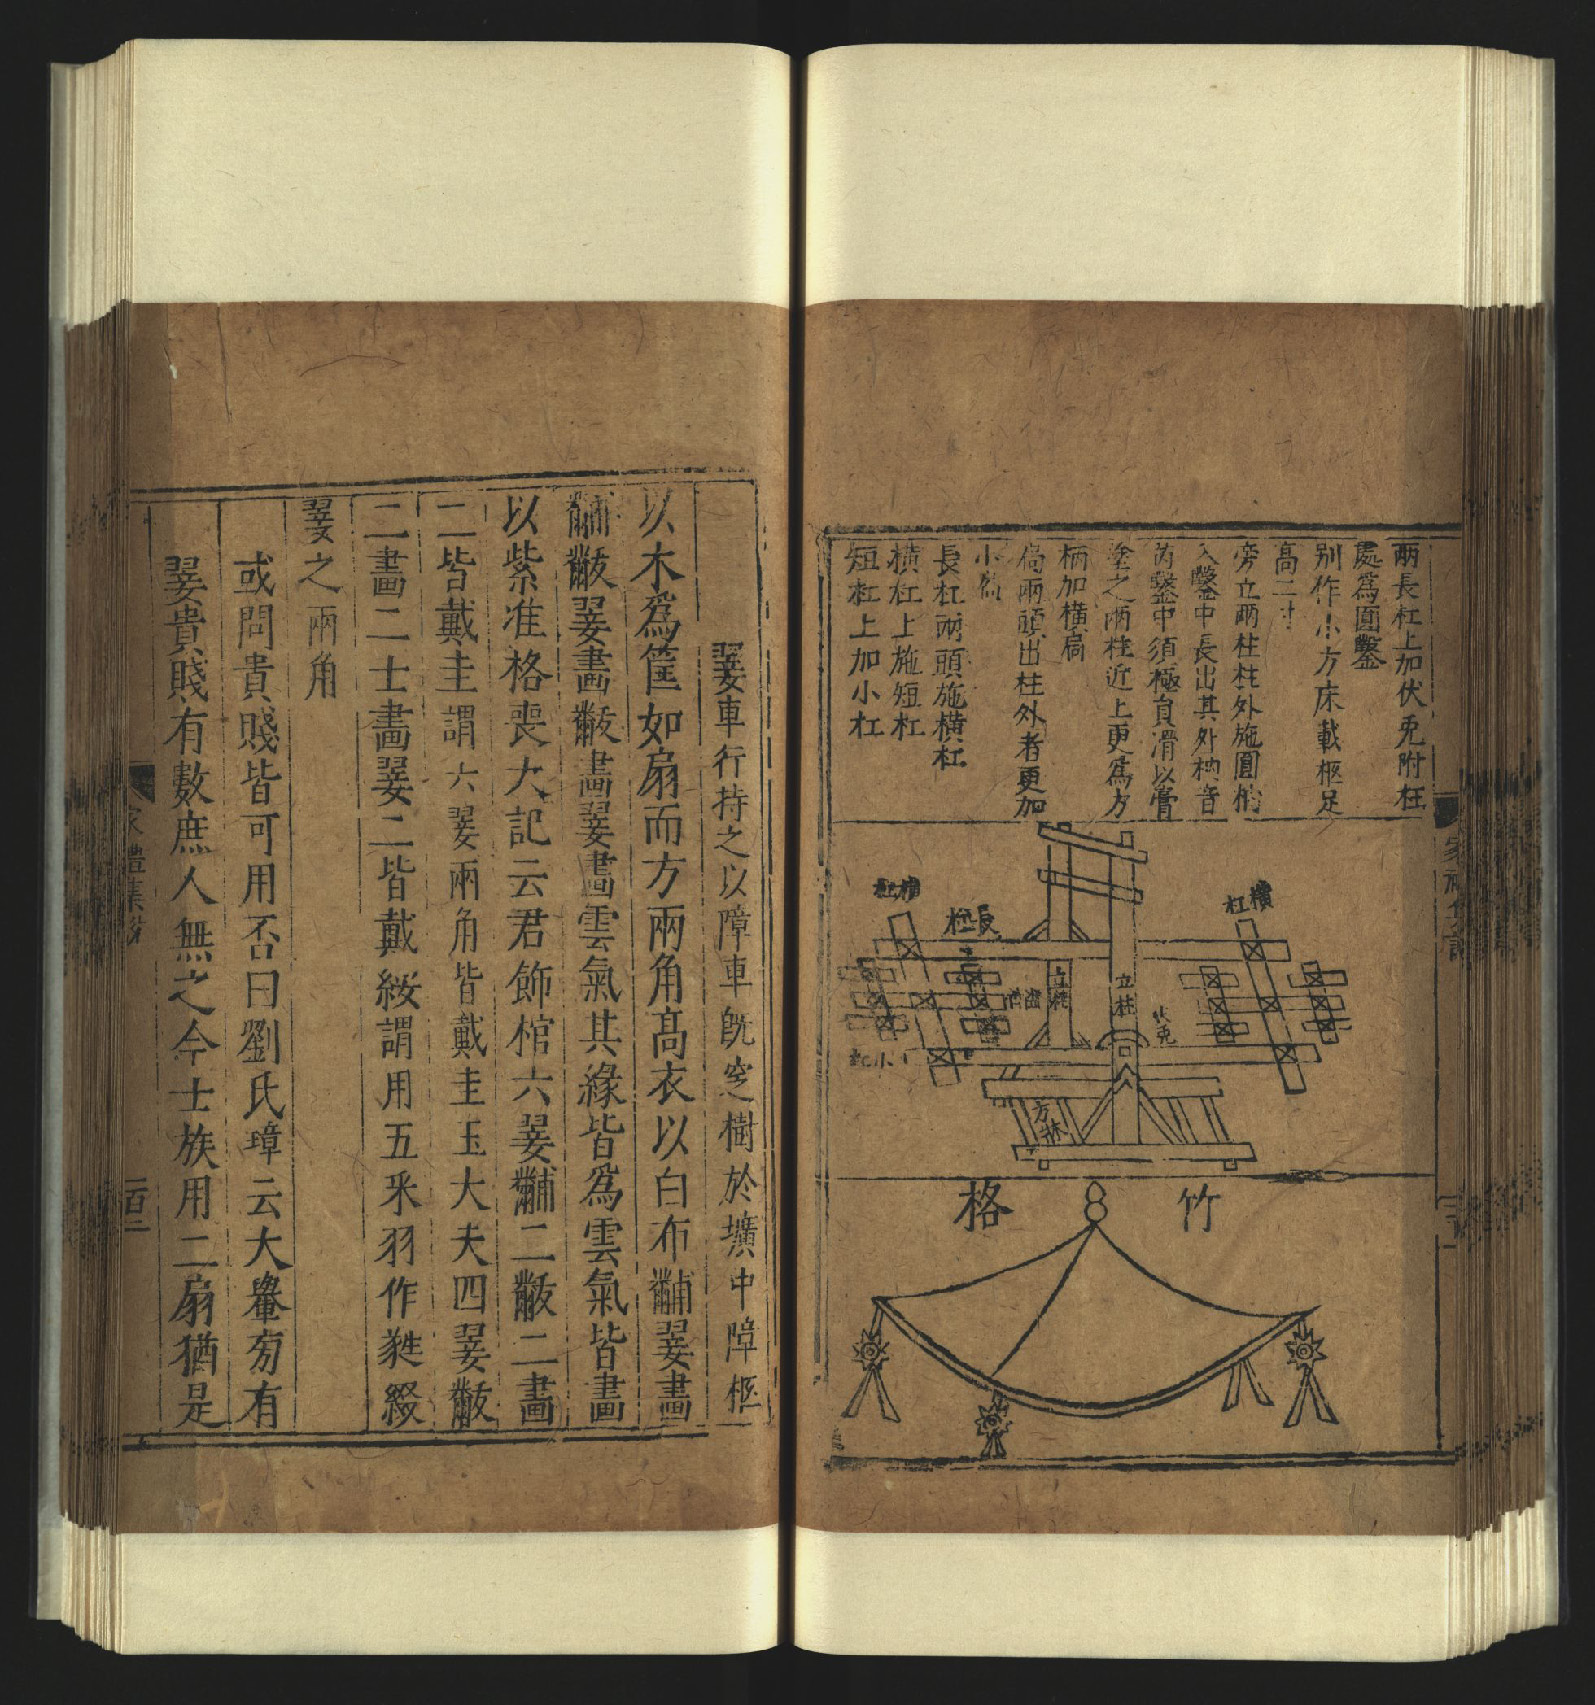 兩長杠上加伏兎附杠
處爲圓鑿
別作小方床載柩足
高二寸
旁立兩柱柱外施圓枘
入鑿中長出其外枘音
芮鑿中須極員滑以膏
塗之兩柱近上更爲方
枘加橫扃
扃兩頭出柱外者更加
小扃
長杠兩頭施橫杠
橫杠上施短杠
短杠上加小杠
橫杠
橫杠
長杠
立柱
立柱
伏兎
小杠
方牀
竹格
翣車行持之以障車旣窆樹於壙中障柩
以木爲筐如扇而方兩角高衣以白布黼翣畫
黼黻翣畫黻畫翣畫雲氣其緣皆爲雲氣皆畫
以紫准格喪大記云君飾棺六翣黼二黻二畫
二皆戴圭謂六翣兩角皆戴圭玉大夫四翣黻
二畫二士畫翣二皆戴綏謂用五采羽作蕤綴
翣之兩角
或問貴賤皆可用否曰劉氏璋云大轝旁有
翣貴賤有數庶人無之今士族用二扇猶是
家禮集說
百二